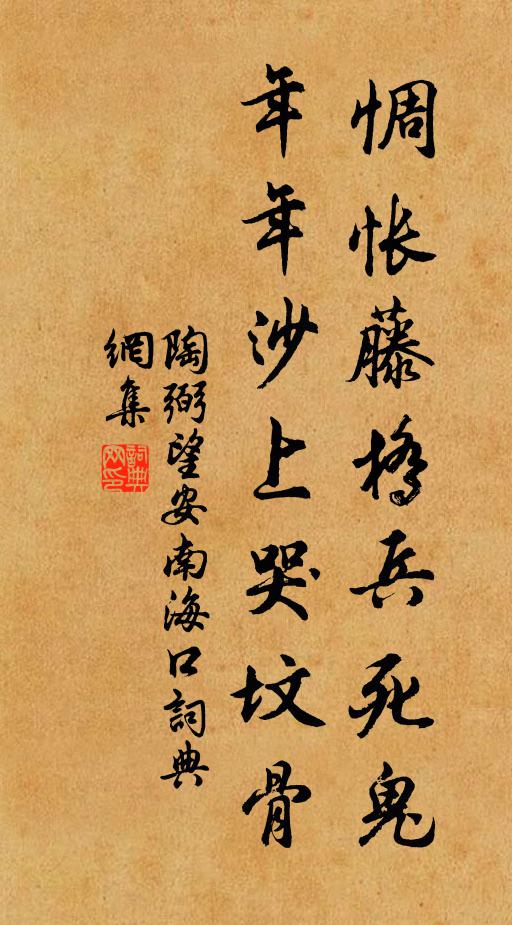 惆怅藤橋兵死鬼
年年沙上哭坟骨
陶弼望安南海口詞典
網集
詞典网印